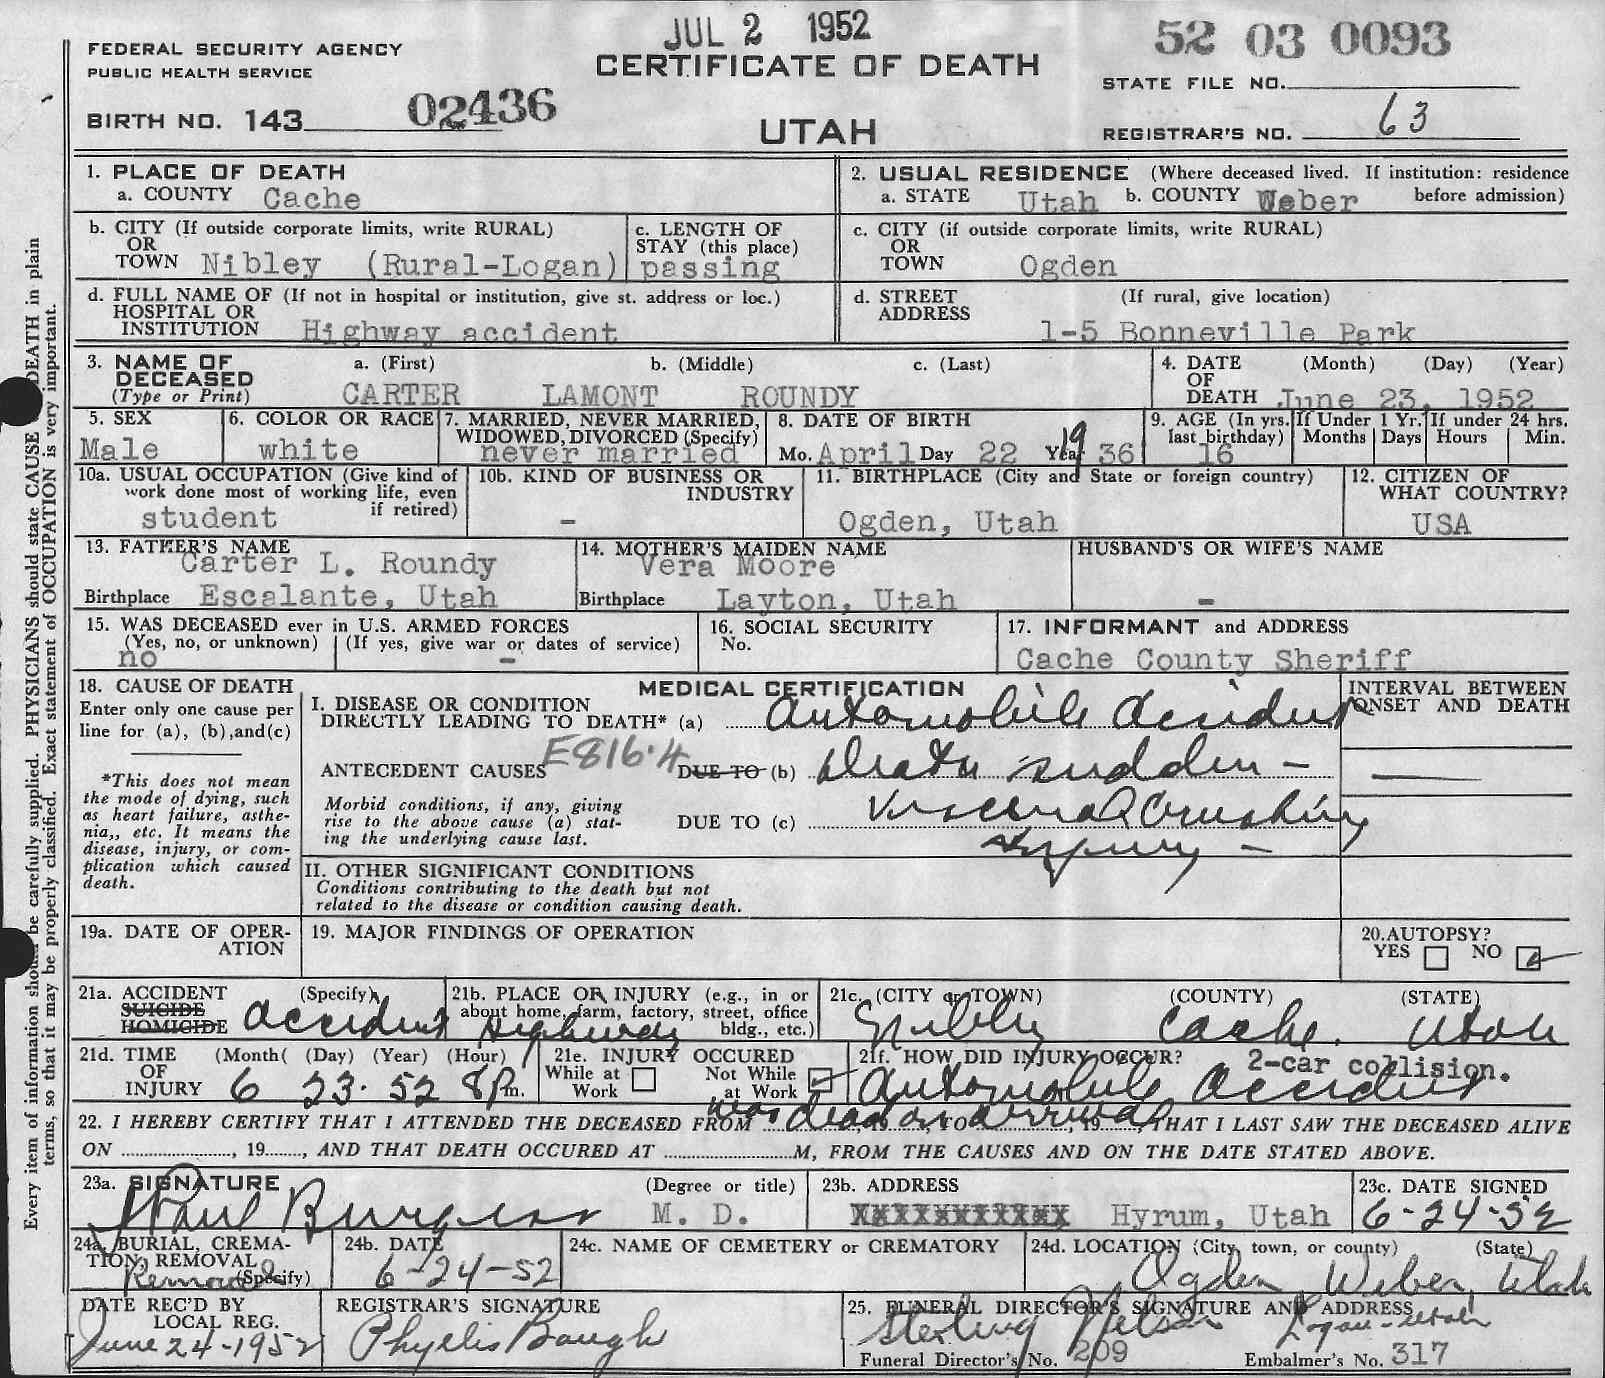 JUL 2 1952
52 03 0093
FEDERAL SECURITY AGENCY
PUBLIC HEALTH SERVICE
CERTIFICATE OF DEATH
STATE FILE NO.
BIRTH NO. 143 02436
UTAH
REGISTRAR'S NO. 63
1. PLACE OF DEATH
a. COUNTY Cache
2. USUAL RESIDENCE (Where deceased lived. If institution: residence before admission)
a. STATE Utah b. COUNTY Weber
b. CITY (If outside corporate limits, write RURAL)
OR
TOWN Nibley (Rural-Logan)
c. LENGTH OF
STAY (this place)
passing
c. CITY (if outside corporate limits, write RURAL)
OR
TOWN Ogden
d. FULL NAME OF (If not in hospital or institution, give st. address or loc.)
HOSPITAL OR
INSTITUTION Highway accident
d. STREET (If rural, give location)
ADDRESS
1-5 Bonneville Park
3. NAME OF DECEASED a. (First) b. (Middle) c. (Last)
(Type or Print) CARTER LAMONT ROUNDY
4. DATE (Month) (Day) (Year)
OF
DEATH June 23, 1952
5. SEX
Male
6. COLOR OR RACE
white
7. MARRIED, NEVER MARRIED,
WIDOWED, DIVORCED (Specify)
never married
8. DATE OF BIRTH
Mo. April Day 22 Year 19 36
9. AGE (In yrs. last birthday)
16
If Under 1 Yr.
Months Days
If under 24 hrs.
Hours Min.
10a. USUAL OCCUPATION (Give kind of
work done most of working life, even
if retired)
student
10b. KIND OF BUSINESS OR
INDUSTRY
-
11. BIRTHPLACE (City and State or foreign country)
Ogden, Utah
12. CITIZEN OF
WHAT COUNTRY?
USA
13. FATHER'S NAME
Carter L. Roundy
Birthplace Escalante, Utah
14. MOTHER'S MAIDEN NAME
Vera Moore
Birthplace Layton, Utah
HUSBAND'S OR WIFE'S NAME
-
15. WAS DECEASED ever in U.S. ARMED FORCES
(Yes, no, or unknown) (If yes, give war or dates of service)
no -
16. SOCIAL SECURITY
No.
17. INFORMANT and ADDRESS
Cache County Sheriff
18. CAUSE OF DEATH
Enter only one cause per
line for (a), (b),and(c)
*This does not mean
the mode of dying, such
as heart failure, asthe-
nia,, etc. It means the
disease, injury, or com-
plication which caused
death.
MEDICAL CERTIFICATION
I. DISEASE OR CONDITION
DIRECTLY LEADING TO DEATH* (a) Automobile Accident
E816.4
ANTECEDENT CAUSES DUE TO (b) Death sudden -
Morbid conditions, if any, giving
rise to the above cause (a) stat-
ing the underlying cause last.
DUE TO (c) Visceral Crushing
Injury -
INTERVAL BETWEEN
ONSET AND DEATH
II. OTHER SIGNIFICANT CONDITIONS
Conditions contributing to the death but not
related to the disease or condition causing death.
19a. DATE OF OPER-
ATION
19. MAJOR FINDINGS OF OPERATION
20. AUTOPSY?
YES NO
21a. ACCIDENT (Specify)
SUICIDE
HOMICIDE accident
21b. PLACE OF INJURY (e.g., in or
about home, farm, factory, street, office
bldg., etc.)
Highway
21c. (CITY or TOWN) (COUNTY) (STATE)
Nibley Cache. Utah
21d. TIME (Month( (Day) (Year) (Hour)
OF
INJURY 6 23. 52 8 Pm.
21e. INJURY OCCURED
While at Work Not While at Work
21f. HOW DID INJURY OCCUR?
2-car collision.
Automobile Accident
22. I HEREBY CERTIFY THAT I ATTENDED THE DECEASED FROM was dead on arrival, TO , 19 , THAT I LAST SAW THE DECEASED ALIVE
ON , 19 , AND THAT DEATH OCCURED AT M, FROM THE CAUSES AND ON THE DATE STATED ABOVE.
23a. SIGNATURE (Degree or title)
Paul Burgess M. D.
23b. ADDRESS
XXXXXXXXXXX Hyrum, Utah
23c. DATE SIGNED
6-24-52
24a. BURIAL, CREMA-
TION, REMOVAL
(Specify)
Removal
24b. DATE
6-24-52
24c. NAME OF CEMETERY or CREMATORY
24d. LOCATION (City, town, or county) (State)
Ogden Weber, Utah
DATE REC'D BY
LOCAL REG.
June 24-1952
REGISTRAR'S SIGNATURE
Phyllis Baugh
25. FUNERAL DIRECTOR'S SIGNATURE AND ADDRESS
Sterling Nelson Logan-Utah
Funeral Director's No. 209
Embalmer's No. 317
Every item of information should be carefully supplied. PHYSICIANS should state CAUSE OF DEATH in plain
terms, so that it may be properly classified. Exact statement of OCCUPATION is very important.